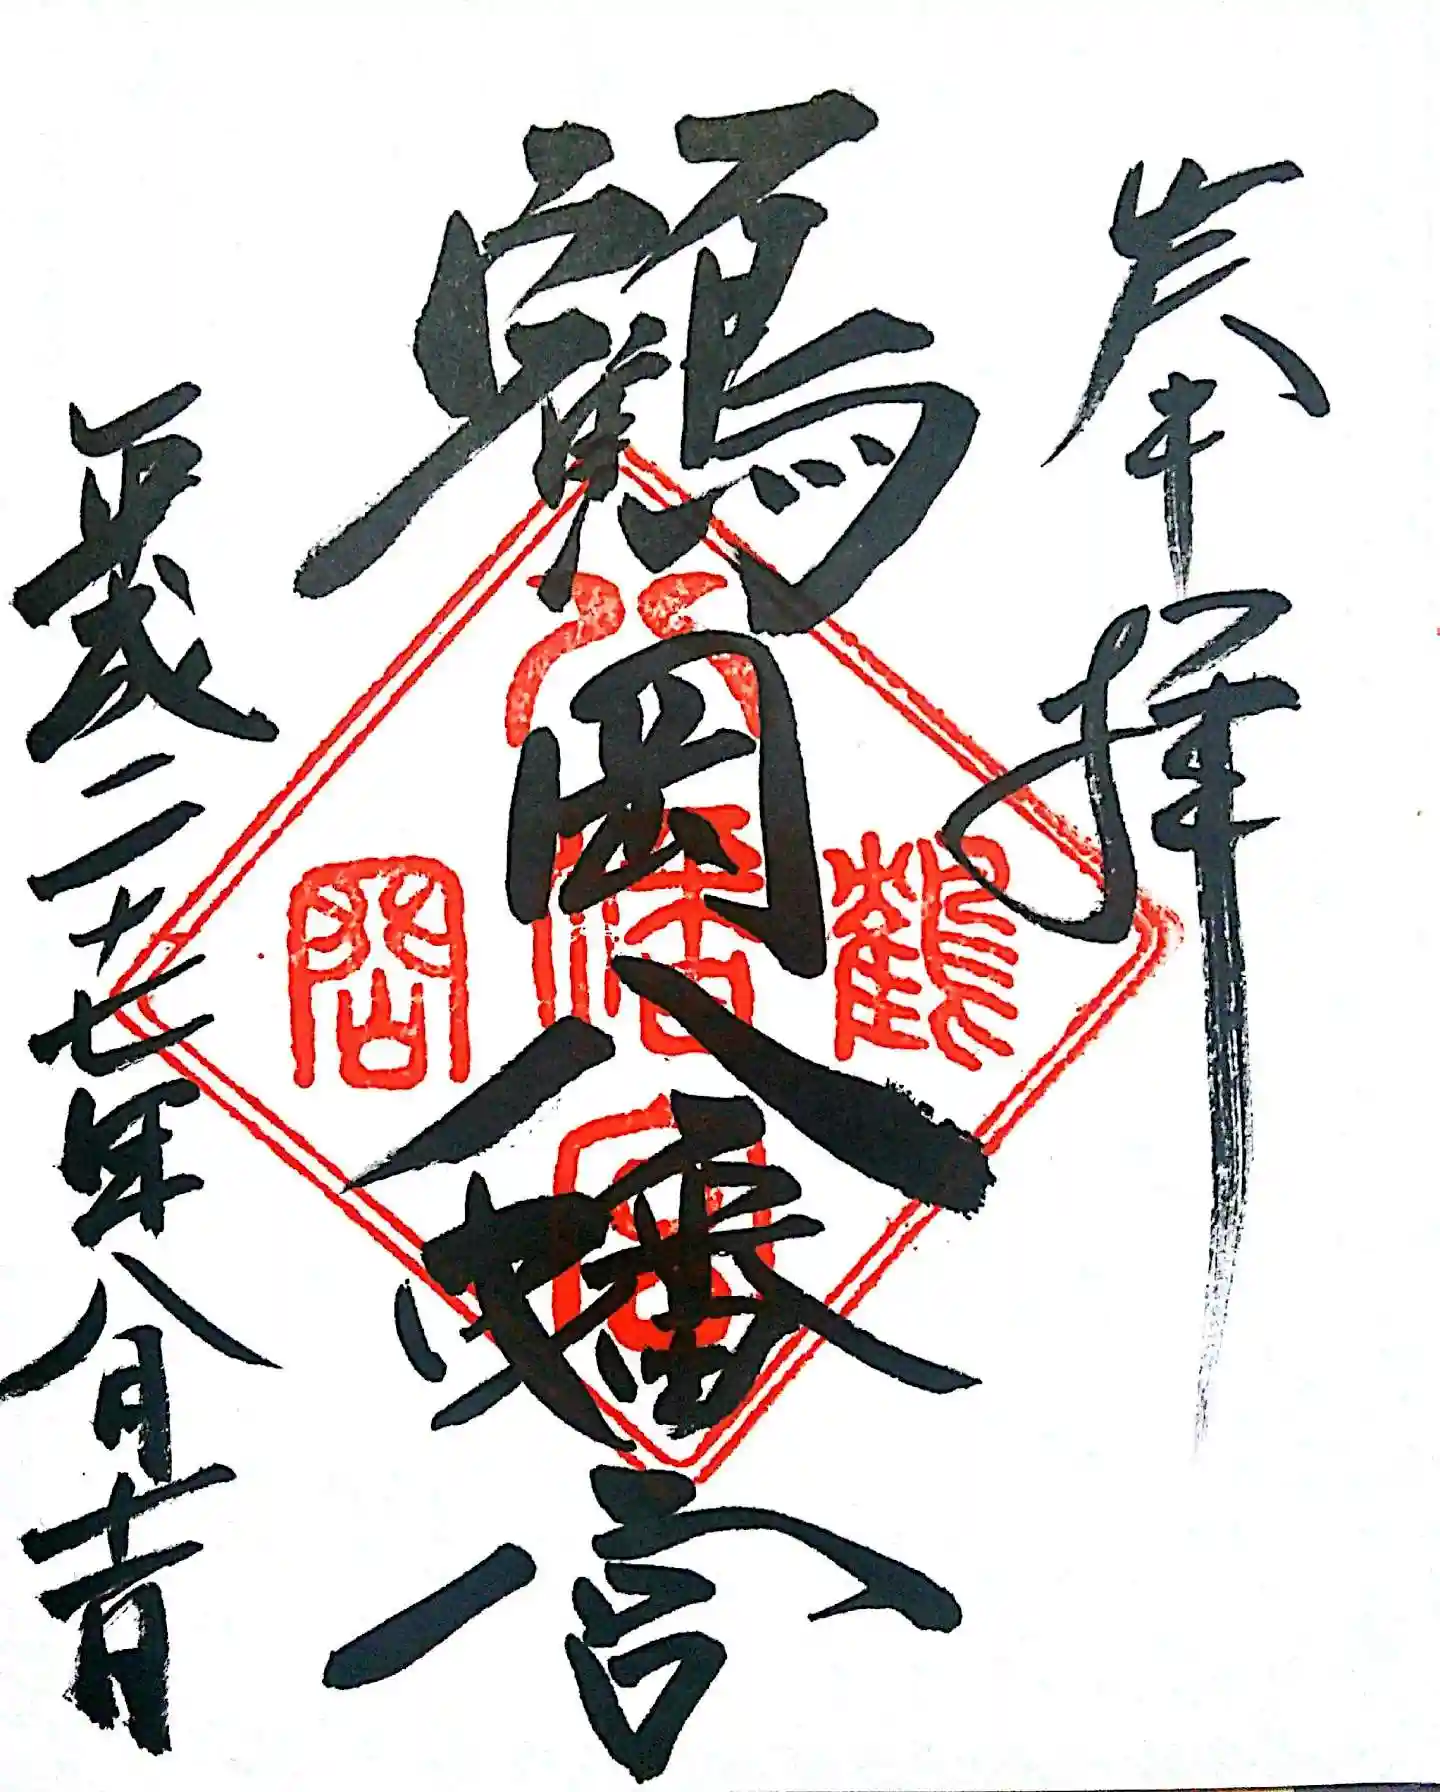 奉拝
鶴岡八幡宮
平成二十七年八月十一日
鶴岡八幡宮